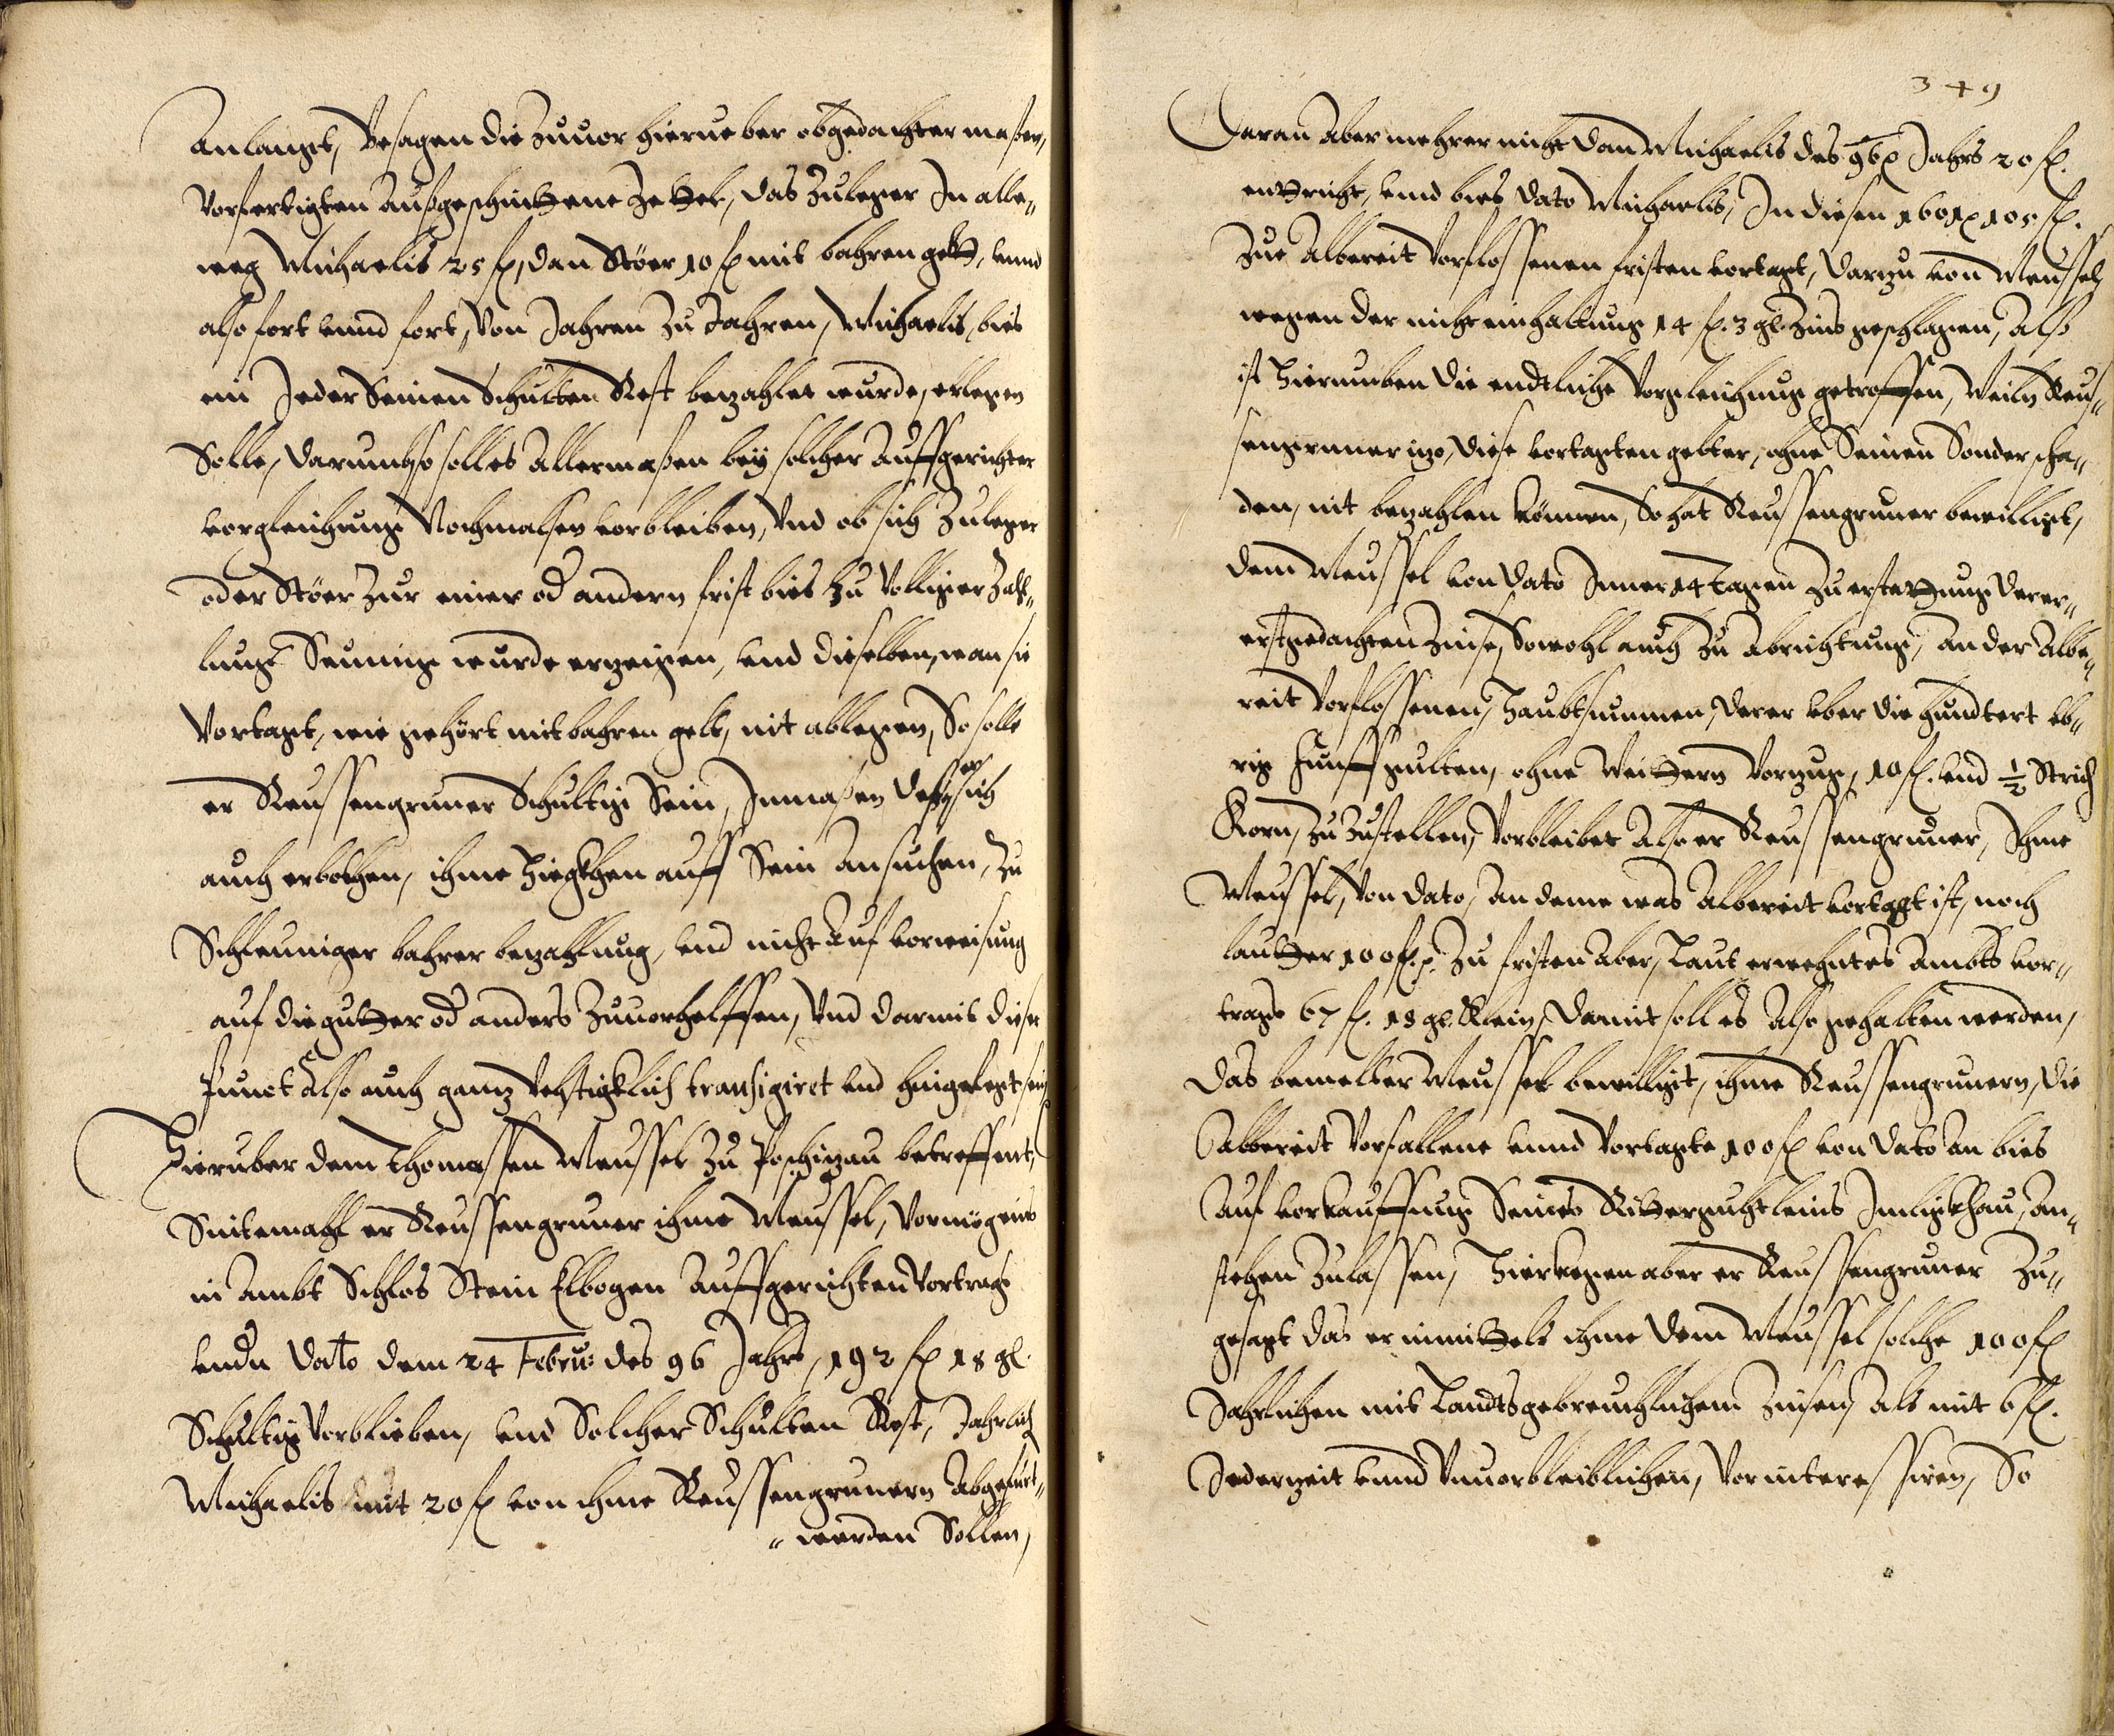 Anlangt, Besagen die zuuor hierueber obgedachter maßen,
Vorfertigten Außgeschnittene Zettel, das Zuleger In alle„
weg Michaelis 25 fl, dan Stöer 10 fl mit bahren gelt, vnnd
also fort vnnd fort, Von Jahren zu Jahren, Michaelis, bies
ein Jeder Seinen Schulten Rest bezahlet wurde, erlegen
Solle, darumb so soll es Allermaßen bey solcher Auffgerichter
vorgleichung Nochmalsen vorbleiben, Vnd ob sich Zuleger
oder Stöer Zur einer od andern frist bies zu Volliger Zah„
lung Seumig wurde erzeigen, vnd dieselben, wan sie
Vortagt, wie gehört mit bahren gelt, nit ablegen, So solle
er Reussengruner Schultig Sein, Inmaßen deß er sich
auch erbothen, ihme auff Sein Ansuchen, Zu
Schleuniger bahrer bezahlung, vnd nicht Auf vorweisung
auf die gutter od anders Zuuorhelffen, Vnd darmit dieser
Punct Also auch ganz transigiret vnd hingelegt sein
Hieruber dem Thomassen Meussel Zu Poschizau betreffent,
Sintemahl er Reussengruner ihme Meussel, Vormögens
in Ambt Schlos Stein Elbogen Auffgerichten Vortrags
vndn Dato dem 24 Februs des 96 Jahrs, 192 fl 18 gl.
Schultig Vorblieben, vnd Solcher Schulten Rest, Jahrlich
Michaelis mit 20 fl von ihme Reussengrunern Abgefürt„
„ werden Sollen,
349
Daran Aber mehrer nicht dan Michaelis des 96 Jahrs 20 fl.
entricht, vnnd bies dato Michaelis, In diesen 105 fl.
Zue Albereit Vorflossenen fristen vortagt, darzu von Meussel
wegen der nicht einhaltung 14 fl. 3 gl. Zins geschlagen, Also
ist Hierumben die endtliche Vorgleichung getroffen, Weiln Reus„
sengruner izo, diese vortagten gelter, ohne Seinen Sonder scha„
den, nit bezahlen können, So hat Reussengruner bewilligt,
dem Meussel von dato Inner 14 Tagen Zu erstattung derer„
erstgedachten Zinse, Sowohl auch Zu Abrichtung, An der Albe„
reit Vorflossenen, Haubtsummen, derer vber die hundtert vb„
rig funff gulten, ohne Weittern Vorzug, 10 fl. vnd 1/2 Strich
Korn, zu Zustellen, Vorbleibet Also er Reussengruner, Ihme
Meussel, Von dato, An deme was Albereit vortagt ist, noch
lautter 100 fl. Zu fristen Aber, Laut erwehntes Ambts vor„
trags 67 fl. 18 gl. Klein, Damit soll es Also gehalten werden,
Das bemelter Meussel bewilligt, ihme Reussengrunern, die
Albereit Vorfallene vnnd Vortagte 100 fl von dato an bies
Auf vorkauffung Seines Rittergutleins An„
stehen Zulassen, Hierkegen aber er Reussengruner Zu„
gesagt das er inmittels ihme dem Meussel solche 100 fl
Jahrlichen mit Landtsgebreuchlichem Zinsen, Als mit 6 fl.
Jederzeit vnnd Vnuorbleiblichen, Vorinteressiren, So